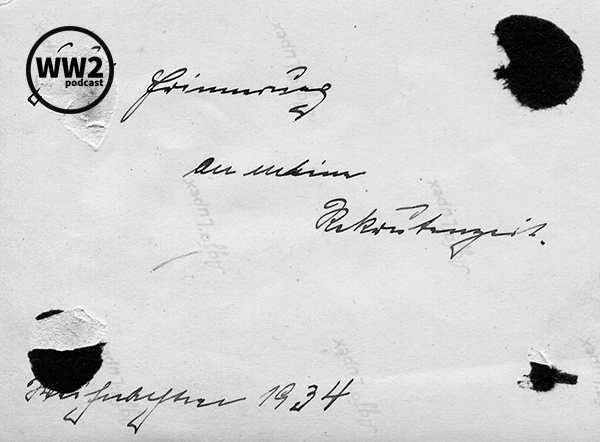 WW2
podcast
Lupex
Erinnerung
an meine
Agfa Lupex
Agfa Lupex
Rekrutenzeit.
Agfa Lupex
Agfa Lupex
Weihnachten 1934